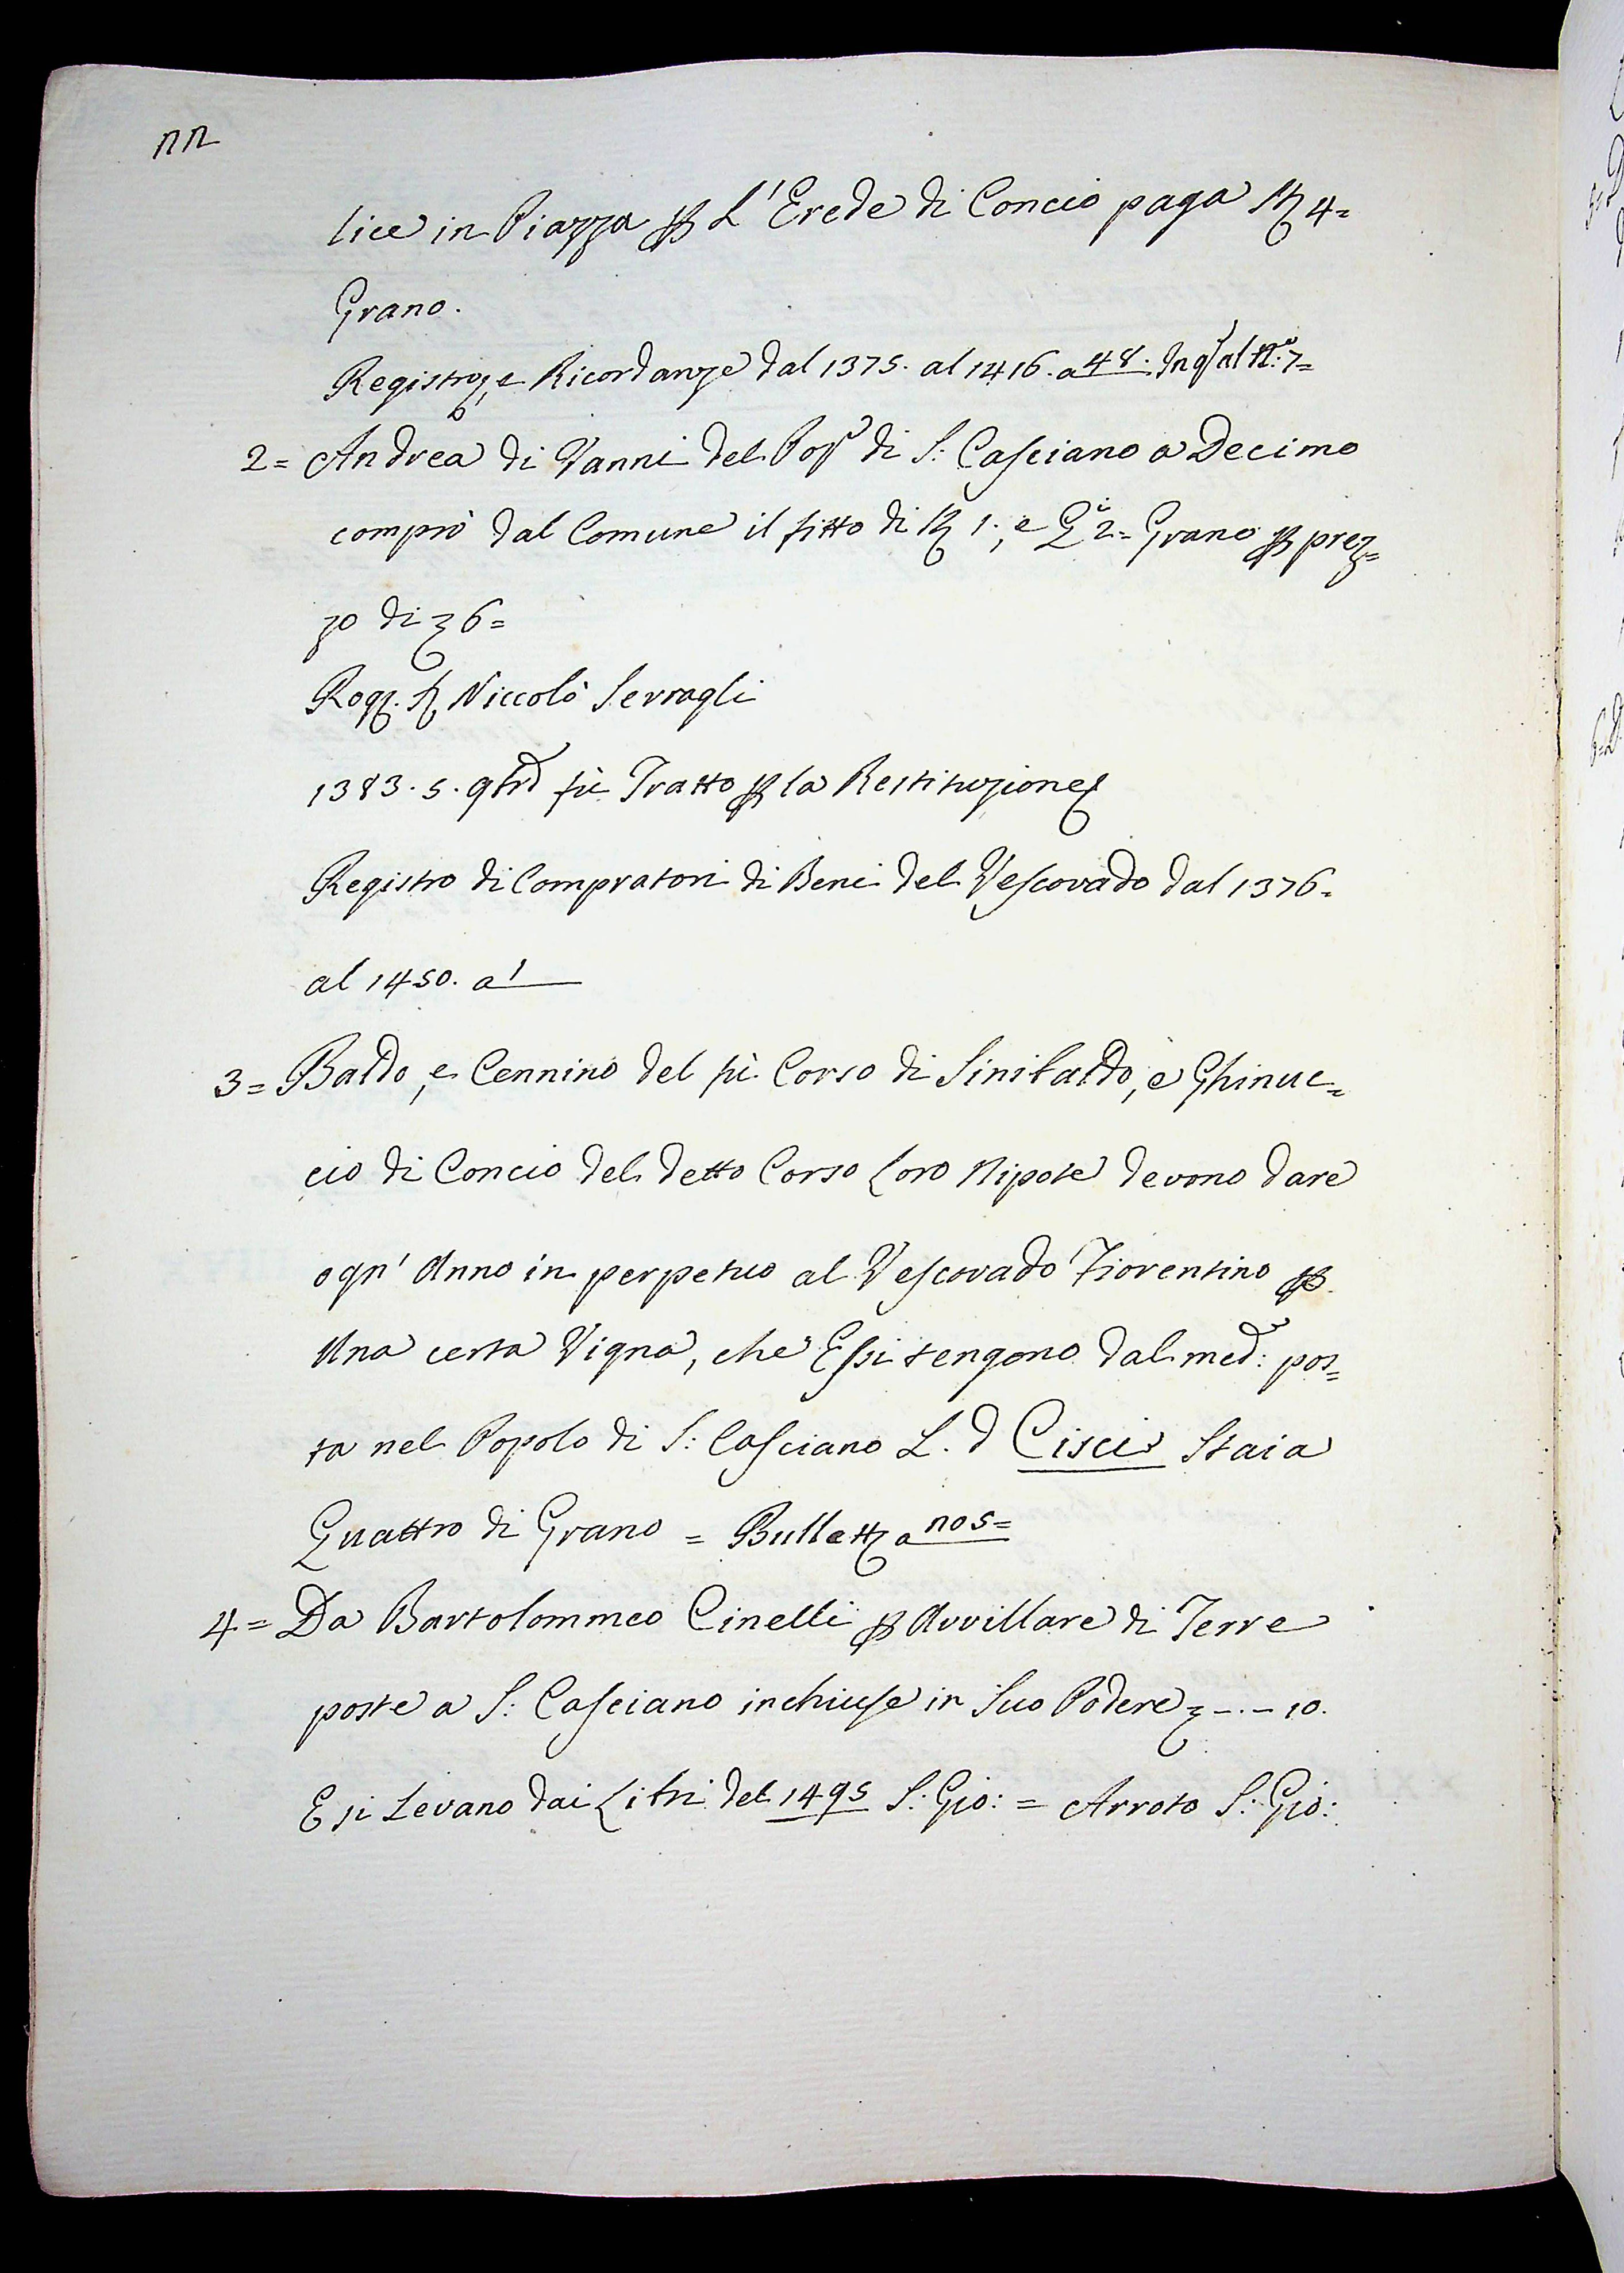 lice in Piazza p L'Erede di Concio paga St 4=
Grano.
Registro, e Ricordanze dal 1375. al 1416. a 48. In qo al No: 7=
2= Andrea di Vanni del Popo di S: Casciano a Decimo
comprò dal Comune il fitto di St 1., e Qe 2= Grano p prez=
zo di £ 6=
Rogo. Sr Niccolò Serragli
1383. 5. 9bre fù Tratto p la Restituzione
Registro di Compratori di Beni del Vescovado dal 1376=
al 1450. a 1
3= Baldo, e Cennino del fù Corso di Sinibaldo, e Ghinuc=
cio di Concio del detto Corso loro Nipote devono dare
ogn' Anno in perpetuo al Vescovado Fiorentino p
Una certa Vigna, che Essi tengono dal med: pos=
ta nel Popolo di S: Casciano L. d Cisci Staia
Quattro di Grano = Bullett a 105=
4= Da Bartolommeo Cinelli p Avvillare di Terre
poste a S: Casciano inchiuse in Suo Podere £ -.- 10.
E si Levano dai Libri del 1495 S: Gio: = Arroto S: Gio: